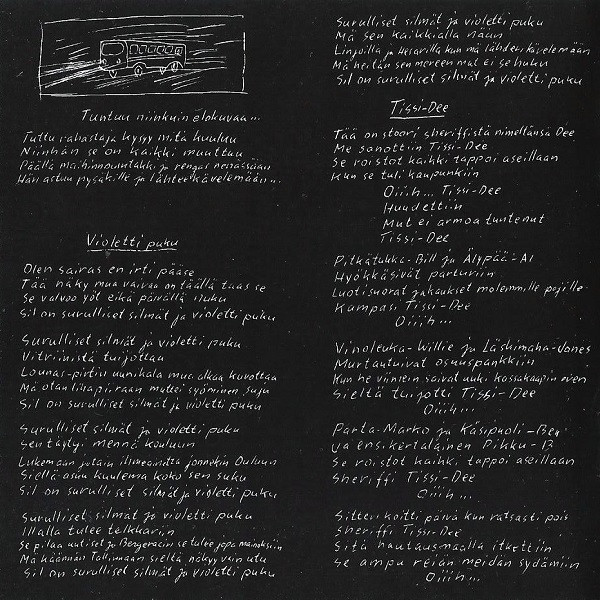 Tuntuu niinkuin elokuvaa...
Tuttu rahastaja kysyy mitä kuuluu
Niinhän se on kaikki muuttuu
Päällä maihinnoususutakki ja rengas nenässään
Hän astuu pysäkille ja lähtee kävelemään...
Violetti puku
Olen sairas en irti pääse
Tää näky mua vaivaa on täällä taas se
Se valvoo yöt eikä päivällä nuku
Sil on surulliset silmät ja violetti puku
Surulliset silmät ja violetti puku
Vitriinistä tuijottaa
Lounas-pirtin uunikala mua alkaa kuvottaa
Mä otan lihapiiraan mutten syöminen suju
Sil on surulliset silmät ja violetti puku
Surulliset silmät ja violetti puku
Sen täytyi mennä kouluun
Lukemaan jotain ilmeisintä jonnekin Ouluun
Siellä asuu kuulema koko sen suku
Sil on surulliset silmät ja violetti puku
Surulliset silmät ja violetti puku
Illalla tulee telkkariin
Se pilaa uutiset ja Bergeracin se tulee jopa mainoksiin
Mä käännän Tallinnaan sieltä näkyy vain utu
Sil on surulliset silmät ja violetti puku
Surulliset silmät ja violetti puku
Mä sen kaikkialla nään
Linjoilla ja Hesarilla kun mä lähden kävelemään
Mä heitän sen mereen mut ei se huku
Sil on surulliset silmät ja violetti puku
Tissi-Dee
Tää on stoori sheriffistä nimeltänsä Dee
Me sanottiin Tissi-Dee
Se roistot kaikki tappoi aseillaan
Kun se tuli kaupunkiin
Oiiih... Tissi-Dee
Huudettiin
Mut ei armoa tuntenut
Tissi-Dee
Pitkätukka-Bill ja Älypää-Al
Hyökkäsivät parturiin
Luotisuorat jakaukset molemmille pojille
Kampasi Tissi-Dee
Oiiih...
Vinoleuka-Willie ja Läskimaha-Jones
Murtautuivat osuuspankkiin
Kun he viimein saivat auki kassakaapin oven
Sieltä tuijotti Tissi-Dee
Oiiih...
Parta-Marko ja Käsipuoli-Ben
ja ens.kertalainen Pikku-B
Se roistot kaikki tappoi aseillaan
Sheriffi Tissi-Dee
Oiiih...
Sitten koitti päivä kun ratsasti pois
Sheriffi Tissi-Dee
Sitä hautausmaalla itkettiin
Se ampu reiän meidän sydämiin
Oiiih...